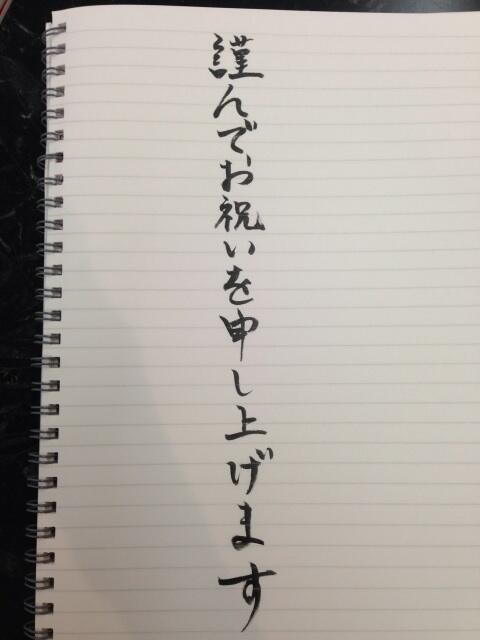 謹んでお祝いを申し上げます